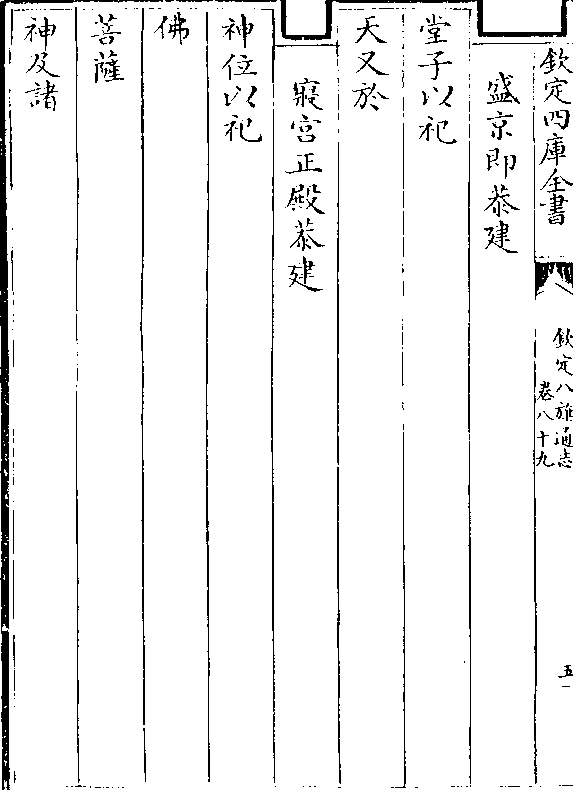 欽定四庫全書
欽定八旗通志
卷八十九
五
盛京即恭建
堂子以祀
天又於
寢宮正殿恭建
神位以祀
佛
菩薩
神及諸